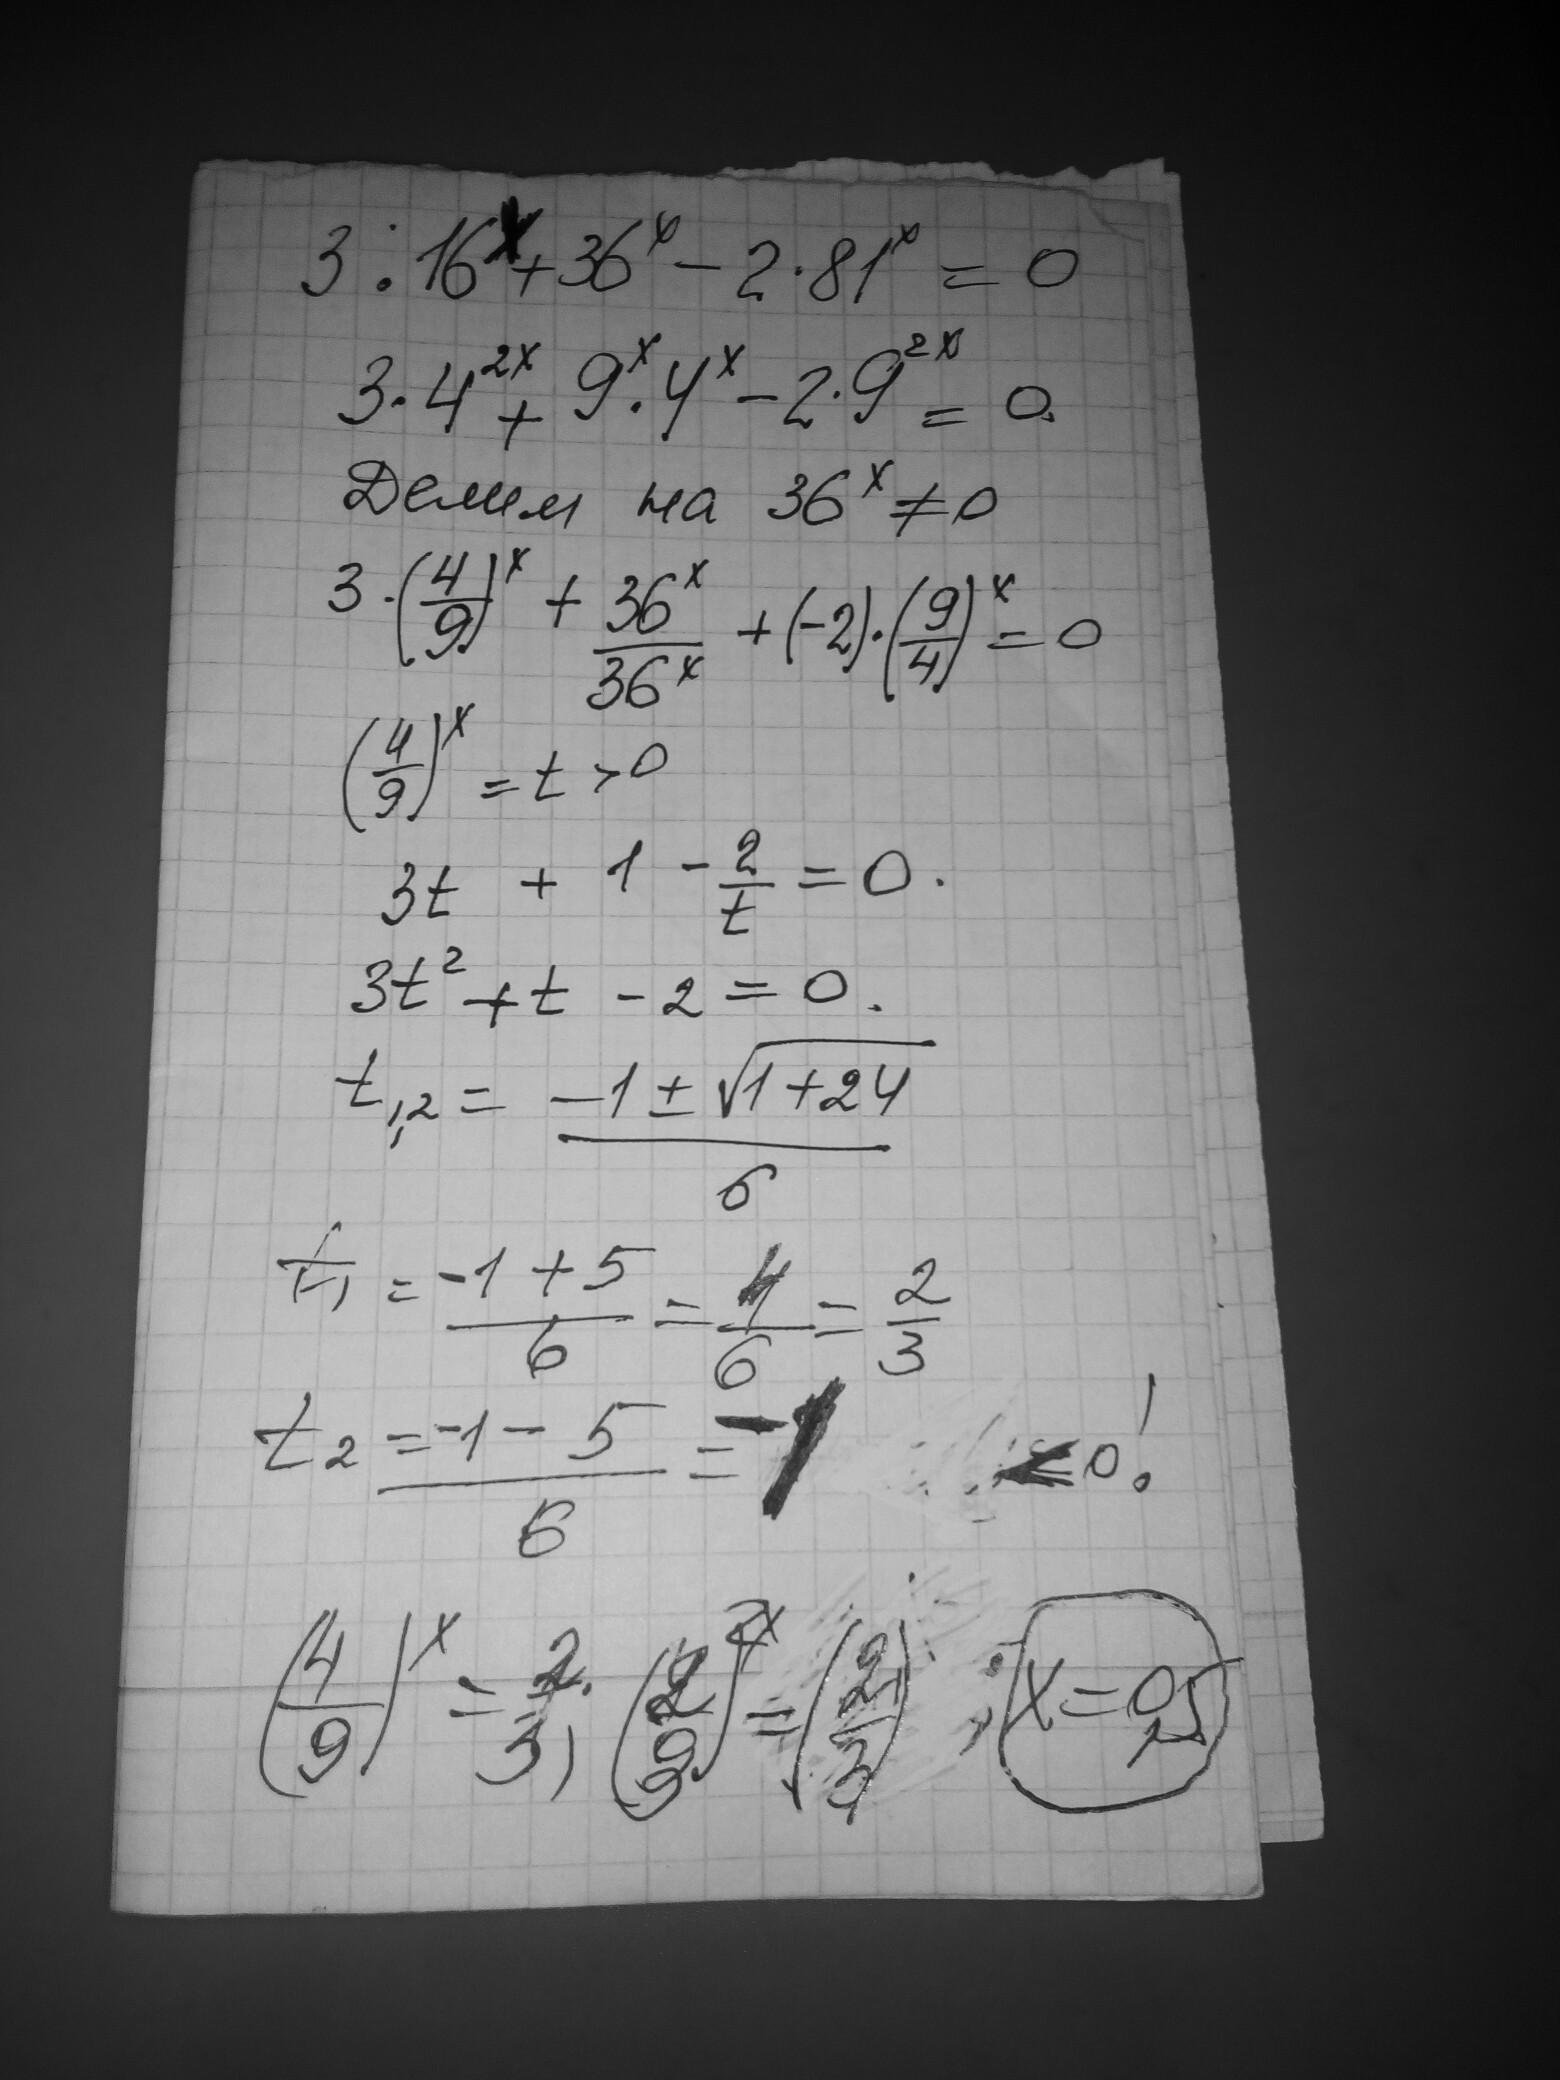 3 : 16^x + 36^x - 2·81^x = 0
3·4^{2x} + 9^x·4^x - 2·9^{2x} = 0.
Делим на 36^x ≠ 0
3·(4/9)^x + 36^x/36^x + (-2)·(9/4)^x = 0
(4/9)^x = t > 0
3t + 1 - 2/t = 0.
3t^2 + t - 2 = 0.
t_{1,2} = (-1 ± √(1+24))/6
t_1 = (-1+5)/6 = 4/6 = 2/3
t_2 = (-1-5)/6 = -1 < 0!
(4/9)^x = 2/3; (2/3)^{2x} = (2/3); x = 0,5